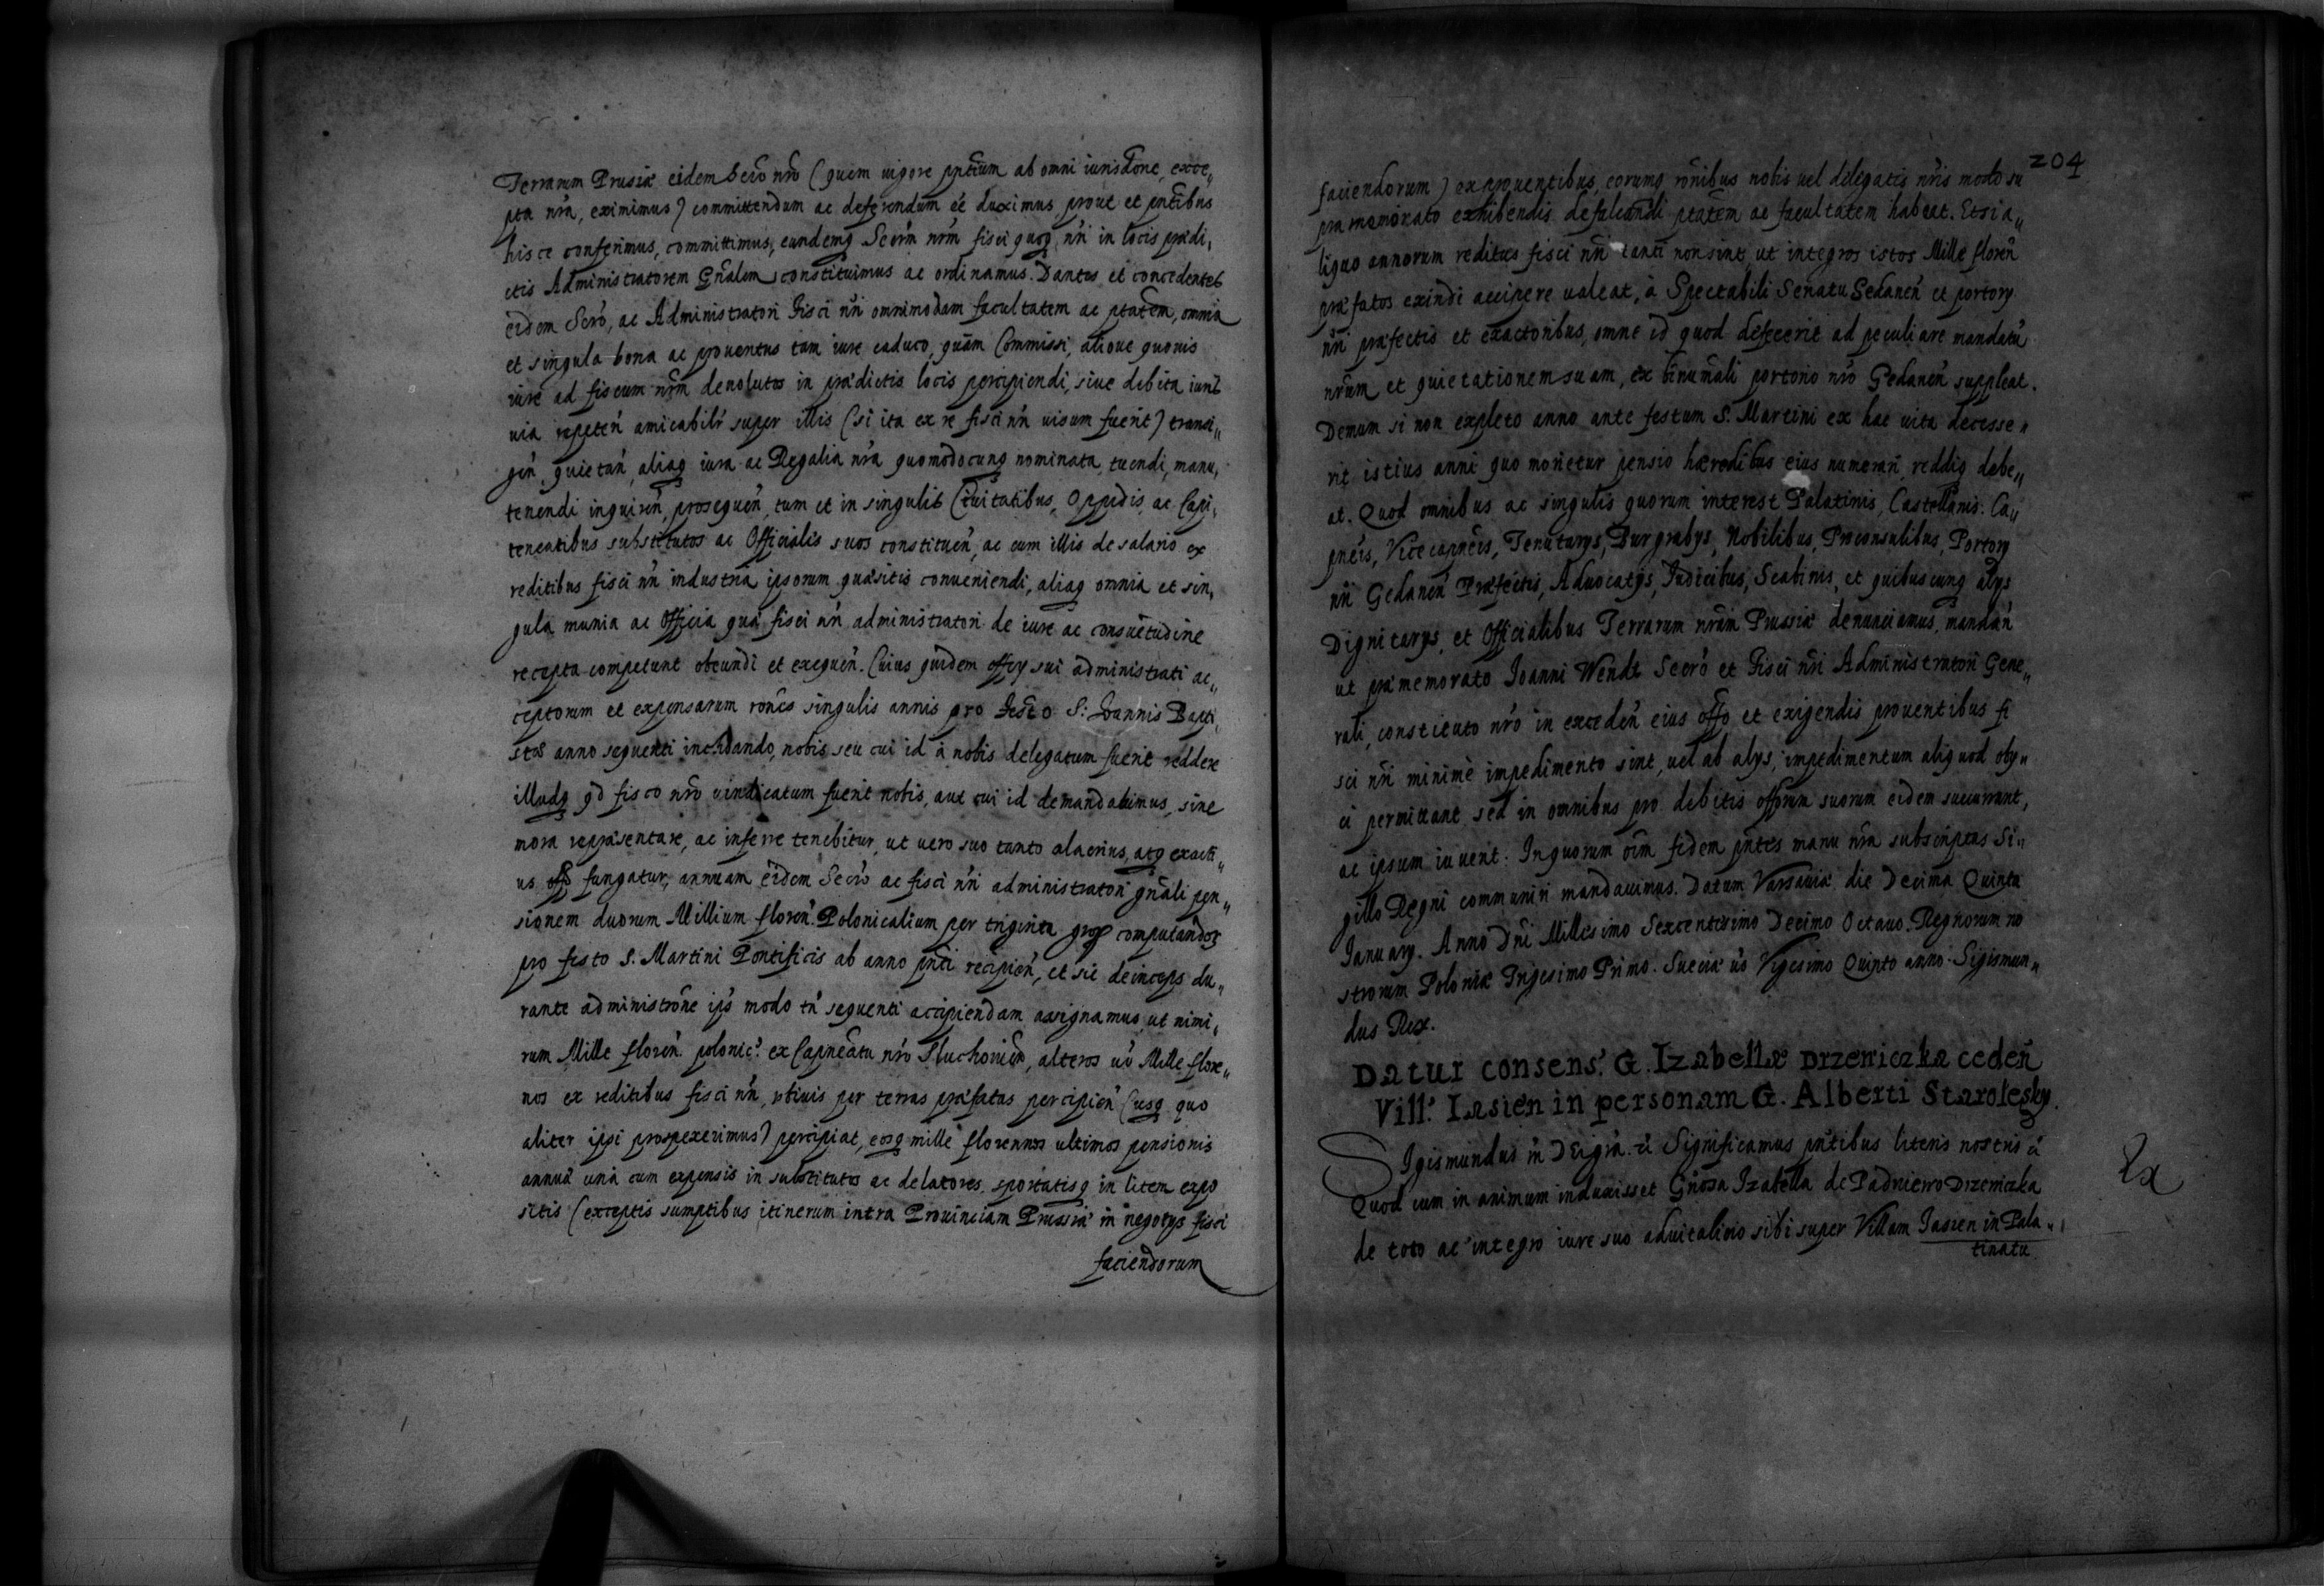 Terrarum Prusiæ eidem Secrō nrō (quem uigore pntium ab omni iurisdōne, exce„
pta nrā, eximimus) committendum ac deferendum ēē duximus prout et pntibus
hisce conferimus, committimus, eundemq Secrm nrm fisci quoq nri in locis prædi„
ctis Administratorem Gnalem constituimus ac ordinamus. Dantes et concedentes
eidem Secrō, ac Administratori Fisci nri omnimodam facultatem ac ptatem, omnia
et singula bona ac prouentus tam iure caduco, quam Commissi, alioue quouis
iure ad fiscum nrm deuolutos in prædictis locis percipiendi, siue debita iuris
uia repeten amicabilr super illis (si ita ex re fisci nri uisum fuerit) transi„
gen, quietan, aliaq iura ac Regalia nra quomodocunq nominata, tuendi, manu„
tenendi inquiren, prosequen, tum et in singulis Ciuitatibus, Oppidis, ac Capi„
teneatibus substitutos ac Officialis suos constituen, ac cum illis de salario ex
reditibus fisci nri industria ipsorum quæsitis conueniendi, aliaq omnia et sin„
gula munia ac Officia quæ fisci nri administratori de iure ac consuetudine
recepta competunt obeundi et exequen. Cuius quidem officy sui administrati ac„
ceptorum et expensarum rones singulis annis pro Festo S: Joannis Bapti„
stæ anno sequenti inchoando, nobis seu cui id a nobis delegatum fuerit reddere
illudq qd fisco nro uindicatum fuerit nobis, aut cui id demandabimus, sine
mora repræsentare, ac inferre tenebitur, ut uero suo tanto alacrius, atq exacti„
us offo fungatur, annuam eidem Secro ac fisci nri administratori gnali pen„
sionem duorum Millium floren. Polonicalium per triginta gros computandos
pro festo S. Martini Pontificis ab anno pnti recipien, et sic deinceps du„
rante administrone ips modo tn sequenti accipiendam assignamus, ut nimi„
rum Mille floren. polonic. ex Capneatu nro Sluchouien, alteros uo Mille flore„
nos ex reditibus fisci nri, utiuis per terras præfatas percipien (usq quo
aliter ipsi prospexerimus) percipiat, eosq mille florennos ultimos pensionis
annuæ una cum expensis in substitutos ac delatores, sportatisq in litem expo
sitis (exceptis sumptibus itinerum intra Prouinciam Prussiæ in negotys fisci
faciendorum
204
faciendorum) ex prouentibus, eorumq ronibus nobis uel delegatis nris modo su
pra memorato exhibendis defalcandi ptatem ac facultatem habeat. Et si a„
liquo annorum reditus fisci nri tanti non sint, ut integros istos Mille floren
præfatos exindi accipere ualeat, à Spectabili Senatu Gedanen et portory
nri præfectis et exactoribus, omne id quod defecerit ad peculiare mandatu
nrum et quietationem suam, ex binumali portorio nro Gedanen suppleat.
Demum si non expleto anno ante festum S. Martini ex hac uita decesse„
rit istius anni quo morietur pensio hæredibus eius numerari, reddiq debe„
at. Quod omnibus ac singulis quorum interest Palatinis, Castellanis. Ca„
pneis, Vicecapneis, Tenutarys, Burgrabys, Nobilibus, Proconsulibus, Portory
nri Gedanen Præfectis, Aduocatys, Iudicibus, Scabinis, et quibuscunq alys
Dignitarys, et Officialibus Terrarum nrarum Prussiæ denunciamus, mandan
ut præmemorato Ioanni Wendt Secro et Fisci nri Administratori Gene„
rali, constituto nro in exceden eius offo et exigendis prouentibus fi
sci nri minime impedimento sint, uel ab alys, impedimentum aliquod obÿ„
ci permittant, sed in omnibus pro debitis offorum suorum eidem succurrant,
ac ipsum iuuent. In quorum oim fidem pntes manu nra subscriptas Si„
gillo Regni communiri mandauimus. Datum Varsauiæ die Decima Quinta
January. Anno Dni Millesimo Sexcentesimo Decimo Octauo. Regnorum no
strorum Poloniæ Trigesimo Primo. Sueciæ uo Vigesimo Quinto anno. Sigismun„
dus Rex.
Datur consens. G. Izabellæ Drzewiczka ceden
Vill. Iasien in personam G. Alberti Starolesky.
Sigismundus in Dei gra. & Significamus pntibus literis nostris &
Quod cum in animum induxisset Gnosa Izabella de Padniewo Drzewiczka
de toto ac integro iure suo aduitalitio sibi super Villam Iasien in Pala„
tinatu